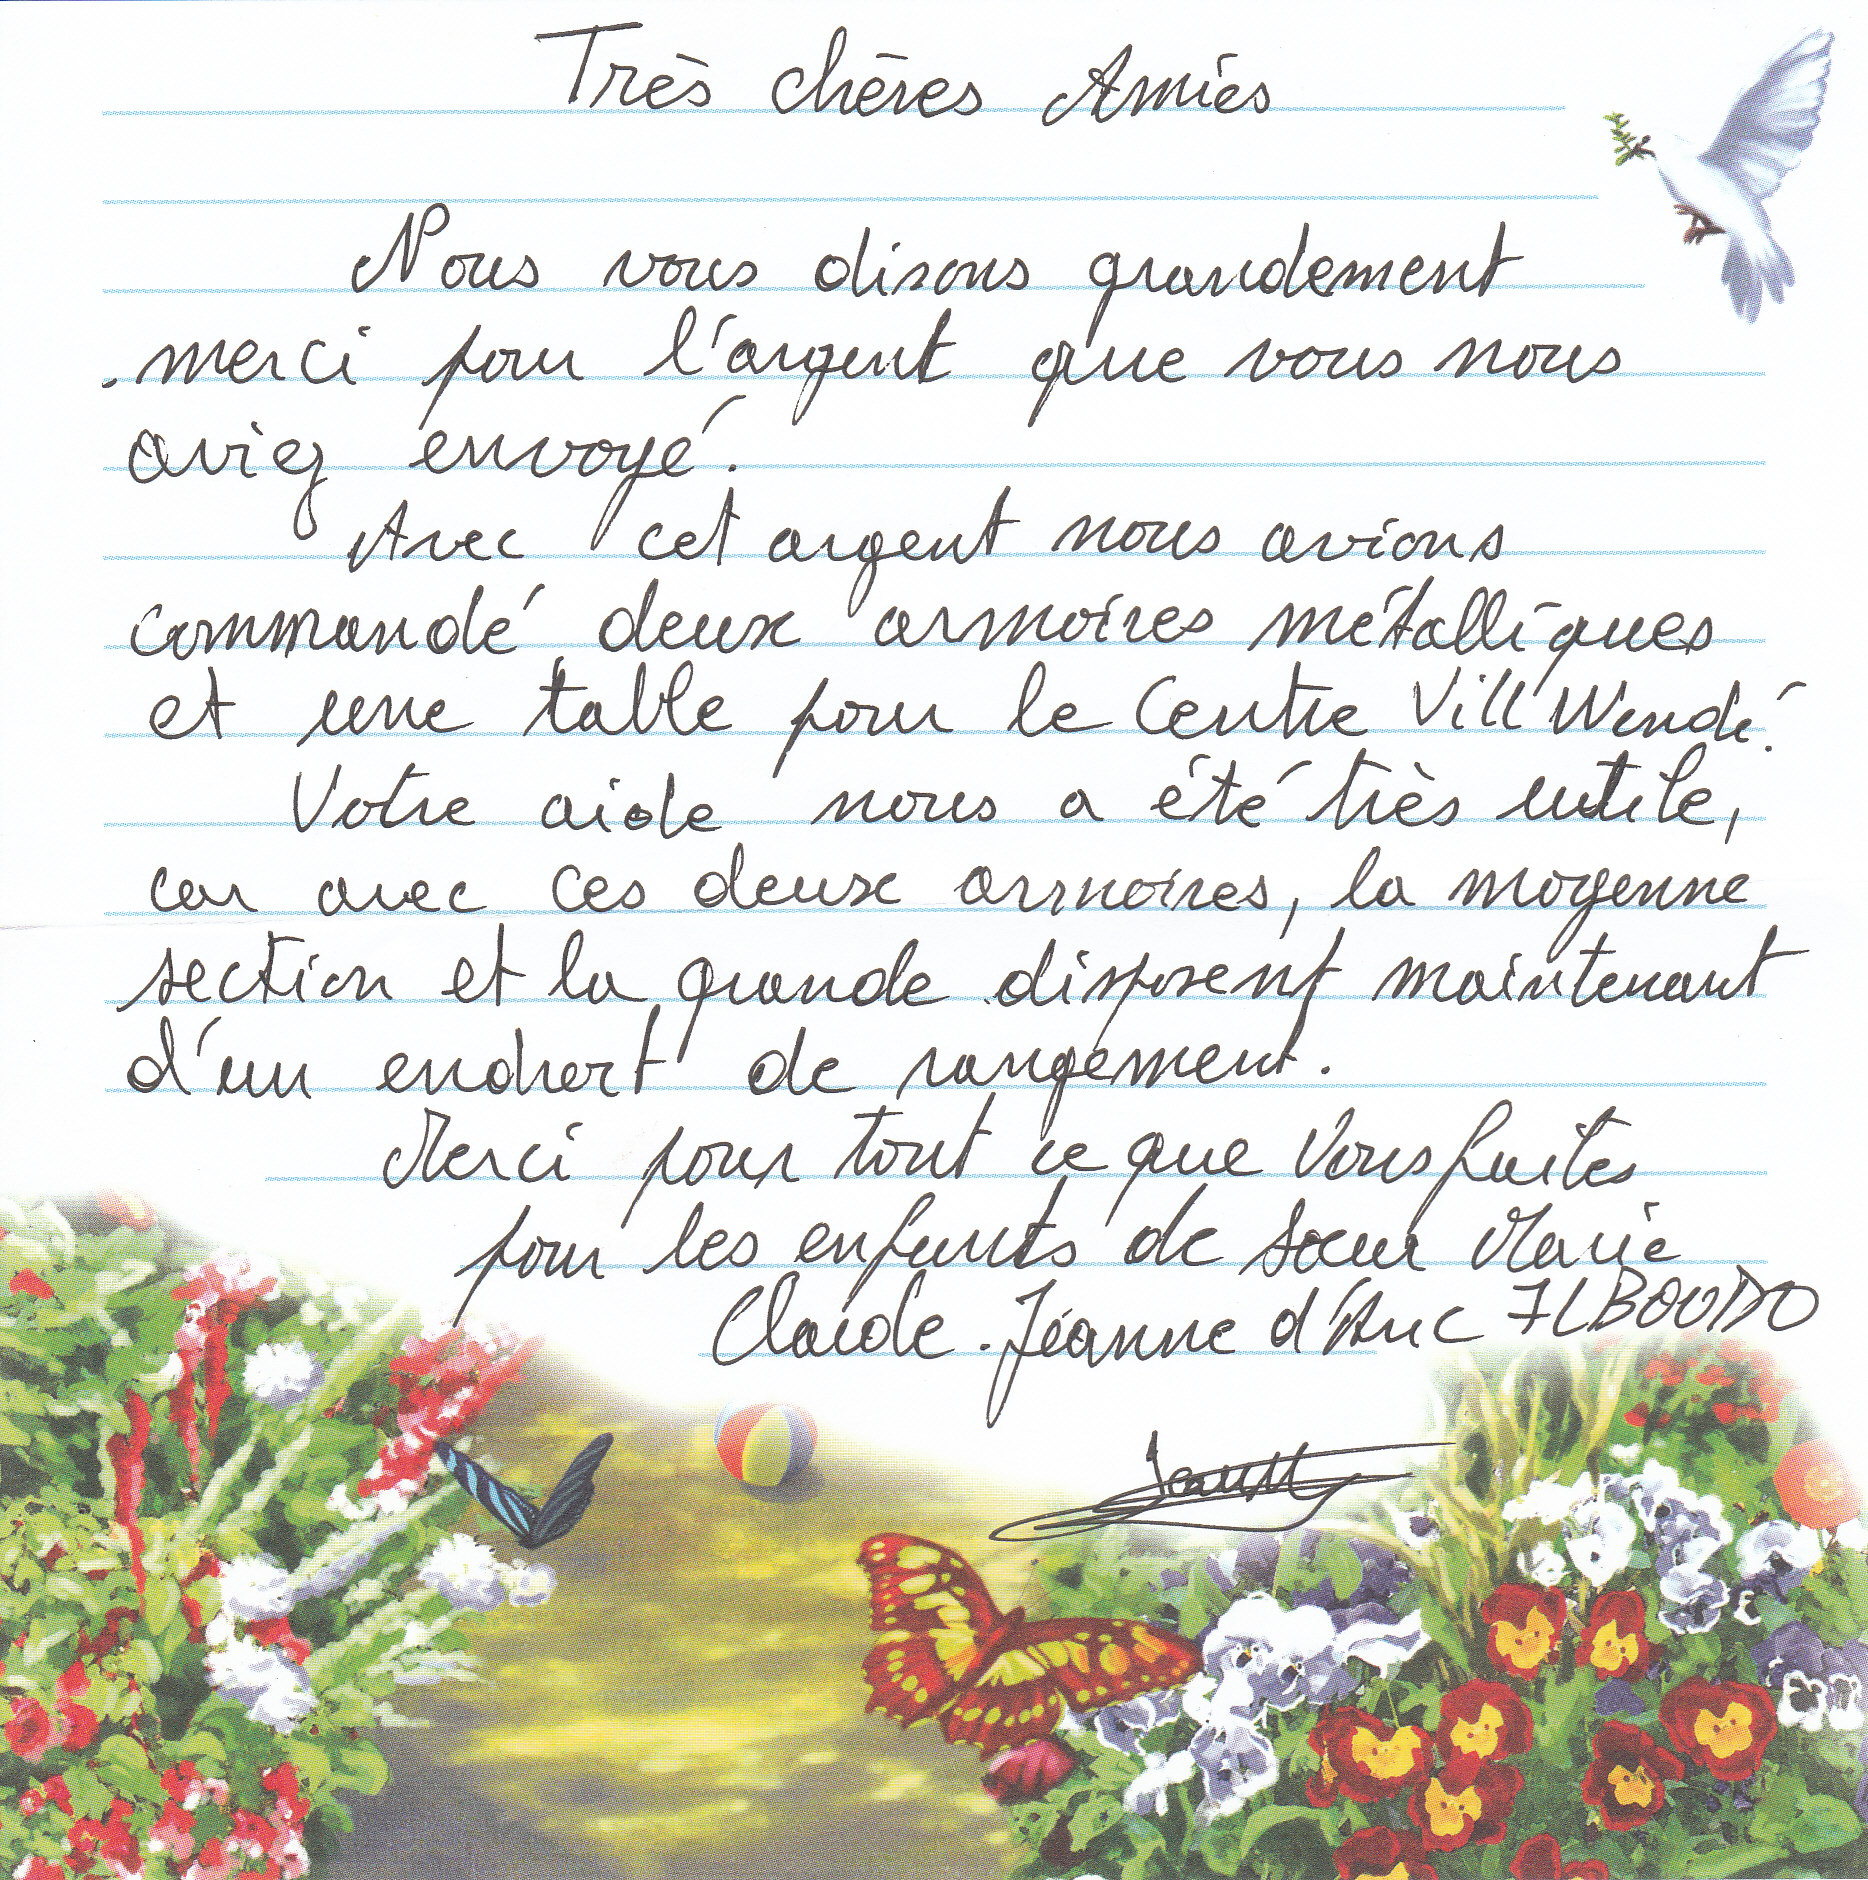 Très chères Amies
Nous vous disons grandement
merci pour l'argent que vous nous
aviez envoyé.
Avec cet argent nous avions
commandé deux armoires métalliques
et une table pour le Centre Vill Wendé.
Votre aide nous a été très utile,
car avec ces deux armoires, la moyenne
section et la grande disposent maintenant
d'un endroit de rangement.
Merci pour tout ce que Vous faites
pour les enfants de Sœur Marie
Claude. Jeanne d'Arc ILBOUDO